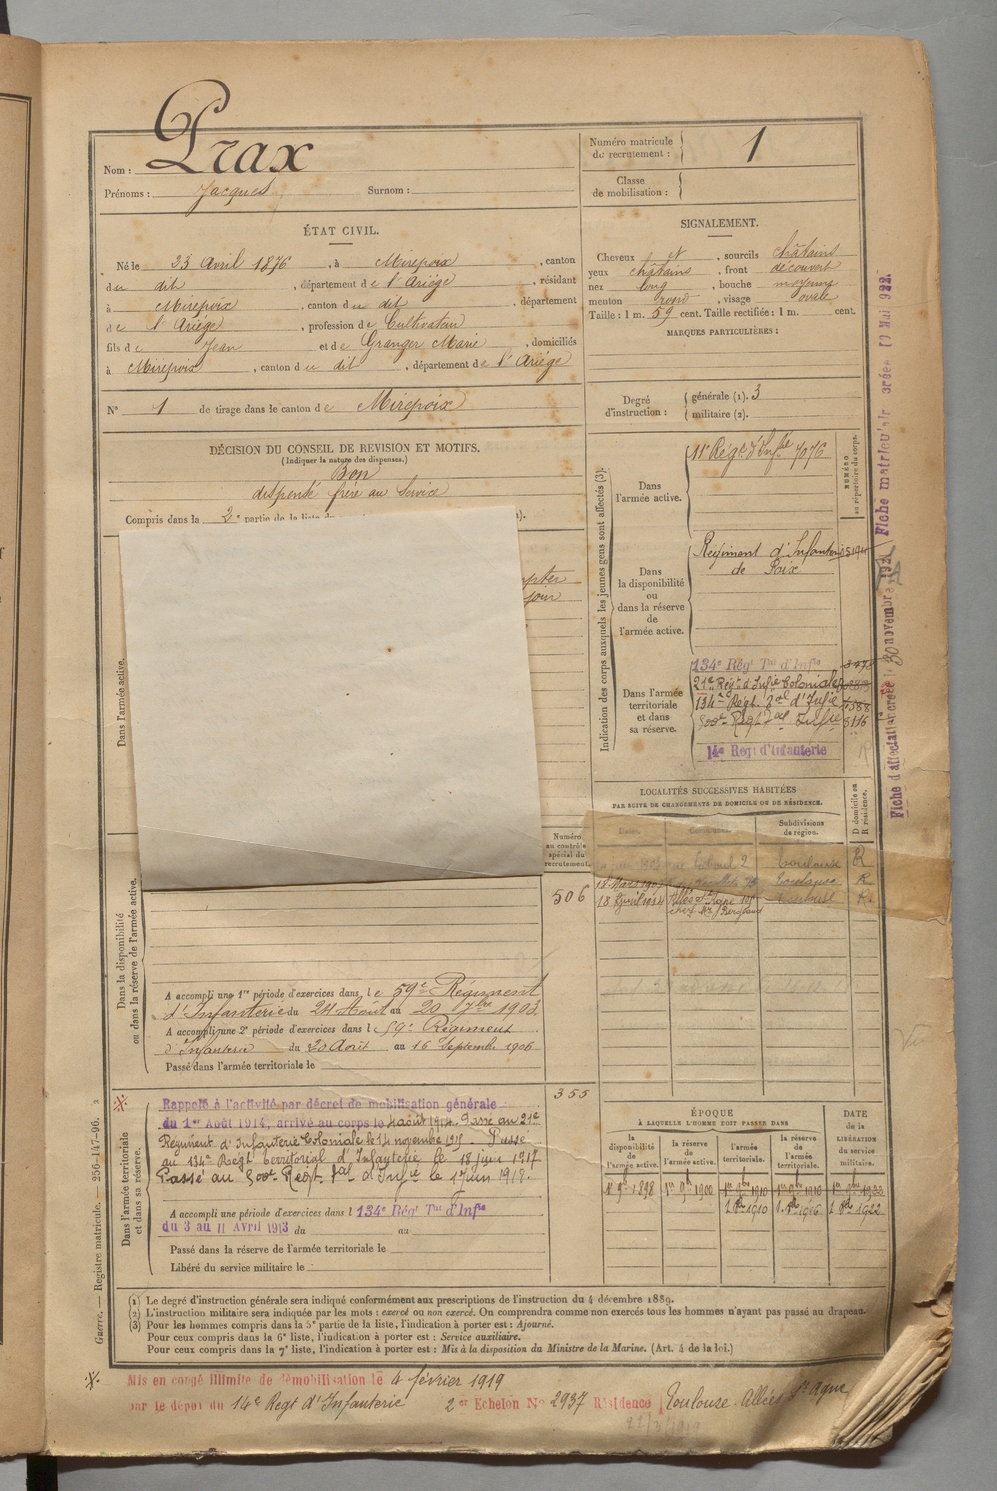 Nom : Prax
Prénoms : Jacques Surnom :
Numéro matricule de recrutement : 1
Classe de mobilisation :
ÉTAT CIVIL.
Né le 23 Avril 1876, à Mirepoix, canton
du dit, département de l'Ariège, résidant
à Mirepoix, canton du dit, département
de l'Ariège, profession de Cultivateur
fils de Jean et de Granger Marie, domiciliés
à Mirepoix, canton du dit, département de l'Ariège
N° 1 de tirage dans le canton de Mirepoix
SIGNALEMENT.
Cheveux et, sourcils châtains
yeux châtains, front découvert
nez long, bouche moyenne
menton rond, visage ovale
Taille : 1 m. 59 cent. Taille rectifiée : 1 m. cent.
MARQUES PARTICULIÈRES :
Degré d'instruction : générale (1). 3
militaire (2).
DÉCISION DU CONSEIL DE REVISION ET MOTIFS.
(Indiquer la nature des dispenses.)
Bon
dispensé frère au service
Compris dans la 2e partie de la liste du
Indication des corps auxquels les jeunes gens sont affectés (3).
NUMÉRO au répertoire du corps.
Dans l'armée active.
11e Régt d'Infie 7076
Dans la disponibilité ou dans la réserve de l'armée active.
Régiment d'Infanterie
de Foix
Dans l'armée territoriale et dans sa réserve.
134e Régt Tal d'Infie
21e Régt d'Infie Coloniale
134e Régt Tal d'Infie 4388
500e Régt Tal Infie 8116
14e Régt d'Infanterie
Fiche d'affectation créée le 30 novembre 1921
Fiche matriculaire créée 19 Mai 1922
Dans l'armée active.
jour
LOCALITÉS SUCCESSIVES HABITÉES
PAR SUITE DE CHANGEMENTS DE DOMICILE OU DE RÉSIDENCE.
Dates. Communes. Subdivisions de région. D domicile ou R résidence.
Toulouse R
18 Mars Toulouse R
18 Avril 1914 Allées St Agne 105 Toulouse R
chez Mr
Numéro au contrôle spécial du recrutement.
506
Dans la disponibilité ou dans la réserve de l'armée active.
A accompli une 1re période d'exercices dans le 59e Régiment
d'Infanterie du 24 Août au 20 7bre 1903.
A accompli une 2e période d'exercices dans le 59e Régiment
d'Infanterie du 20 Août au 16 Septembre 1906
Passé dans l'armée territoriale le
355
Dans l'armée territoriale et dans sa réserve.
Rappelé à l'activité par décret de mobilisation générale
du 1er Août 1914, arrivé au corps le 4 août 1914. Passé au 21e
Régiment d'Infanterie Coloniale le 14 novembre 1915. Passé
au 134e Régt territorial d'Infanterie le 18 juin 1917
Passé au 500e Régt Tal d'Infie le 1er Juin 1918.
A accompli une période d'exercices dans l 134e Régt Tal d'Infie
du 3 au 11 Avril 1913 du au
Passé dans la réserve de l'armée territoriale le
Libéré du service militaire le
ÉPOQUE
À LAQUELLE L'HOMME DOIT PASSER DANS
DATE de la LIBÉRATION du service militaire.
la disponibilité de l'armée active. la réserve de l'armée active. l'armée territoriale. la réserve de l'armée territoriale.
1er 9bre 1898 1er 9bre 1900 1er 9bre 1910 1er 9bre 1916 1er 9bre 1923
1 8bre 1910 1 8bre 1916 1 8bre 1922
(1) Le degré d'instruction générale sera indiqué conformément aux prescriptions de l'instruction du 4 décembre 1889.
(2) L'instruction militaire sera indiquée par les mots : exercé ou non exercé. On comprendra comme non exercés tous les hommes n'ayant pas passé au drapeau.
(3) Pour les hommes compris dans la 5e partie de la liste, l'indication à porter est : Ajourné.
Pour ceux compris dans la 6e liste, l'indication à porter est : Service auxiliaire.
Pour ceux compris dans la 7e liste, l'indication à porter est : Mis à la disposition du Ministre de la Marine. (Art. 4 de la loi.)
Guerre. — Registre matricule. — 256-147-96.
Mis en congé illimité de démobilisation le 4 février 1919
par le dépôt du 14e Régt d'Infanterie 2er Echelon N° 2937 Résidence Toulouse Allées St Agne